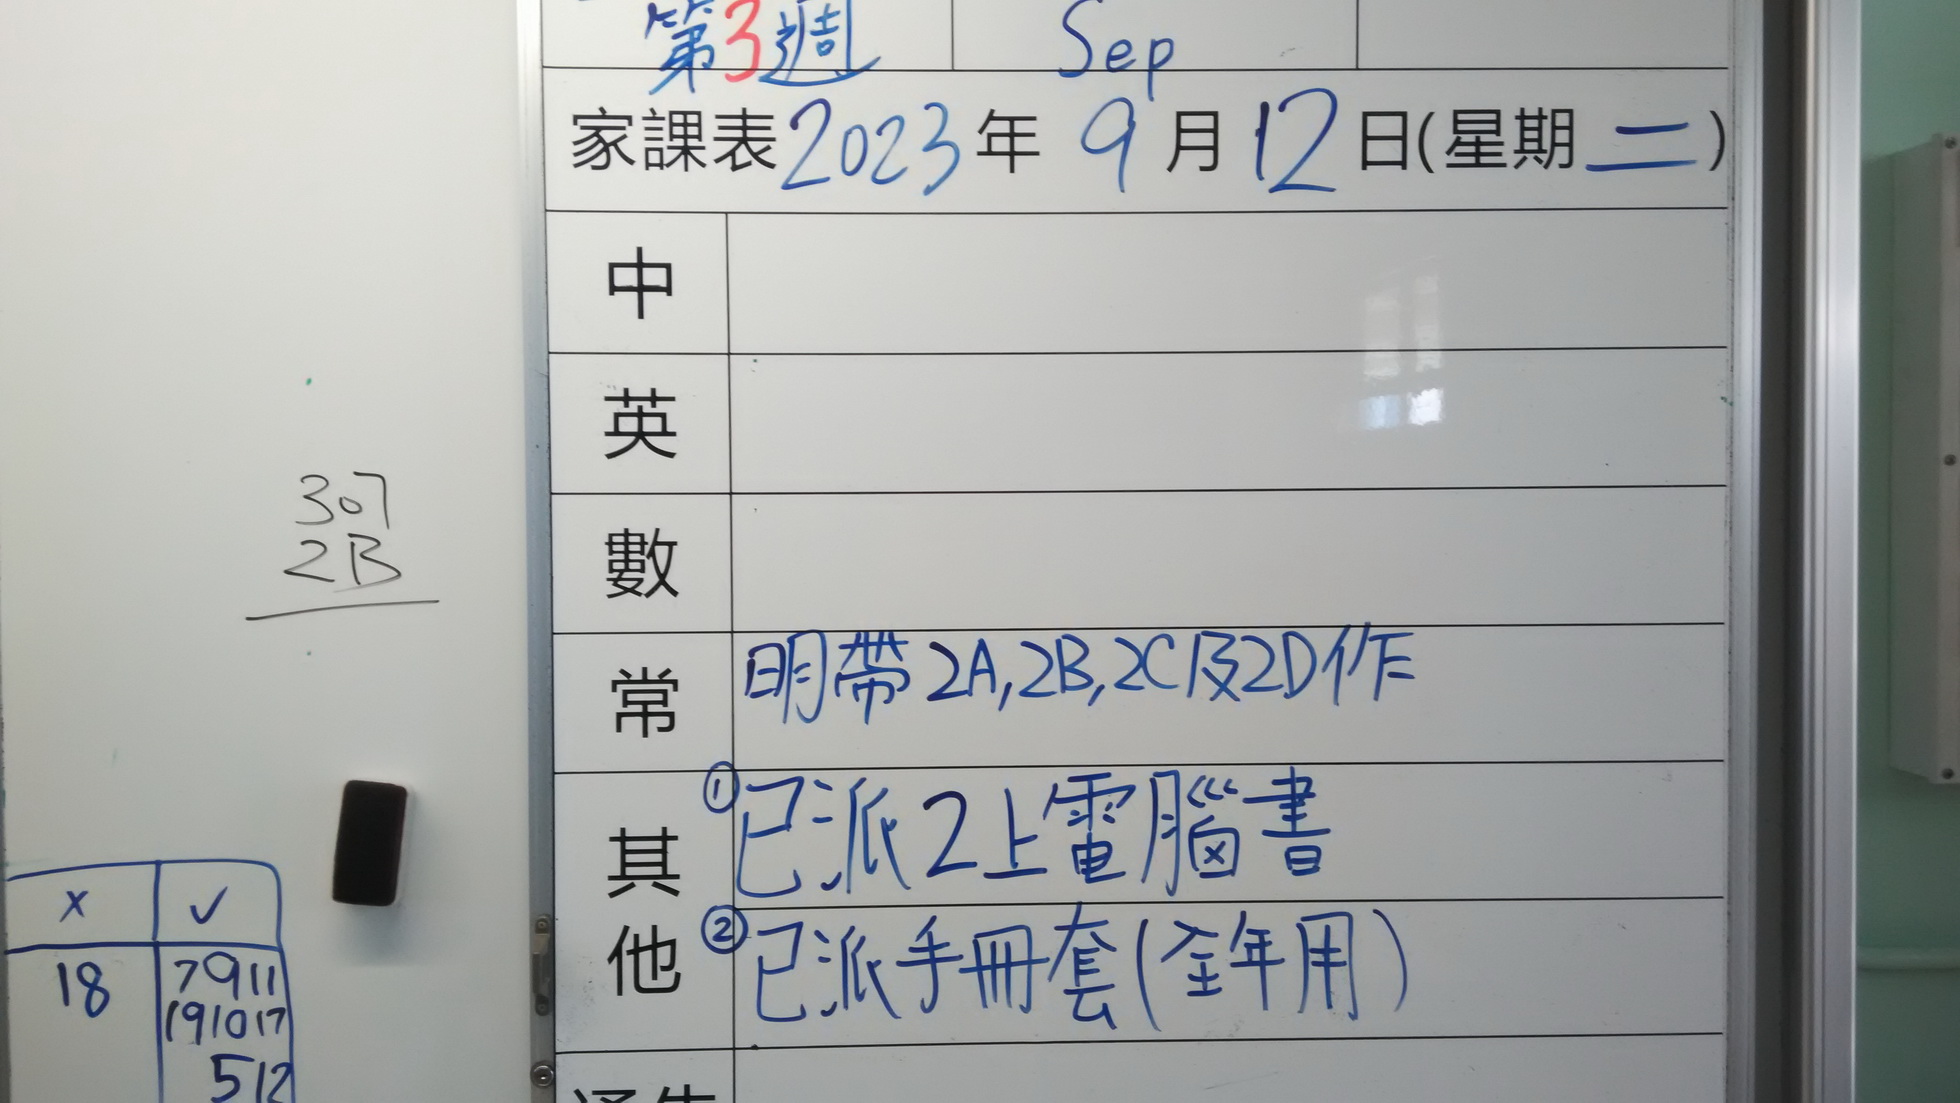 第3週 Sep
家課表2023年 9月 12日(星期二)
中
英
數
常 明帶2A,2B,2C及2D作
其他 ①已派2上電腦書
②已派手冊套(全年用)
307
2B
x ✓
18 7 9 11
19 10 17
5 12